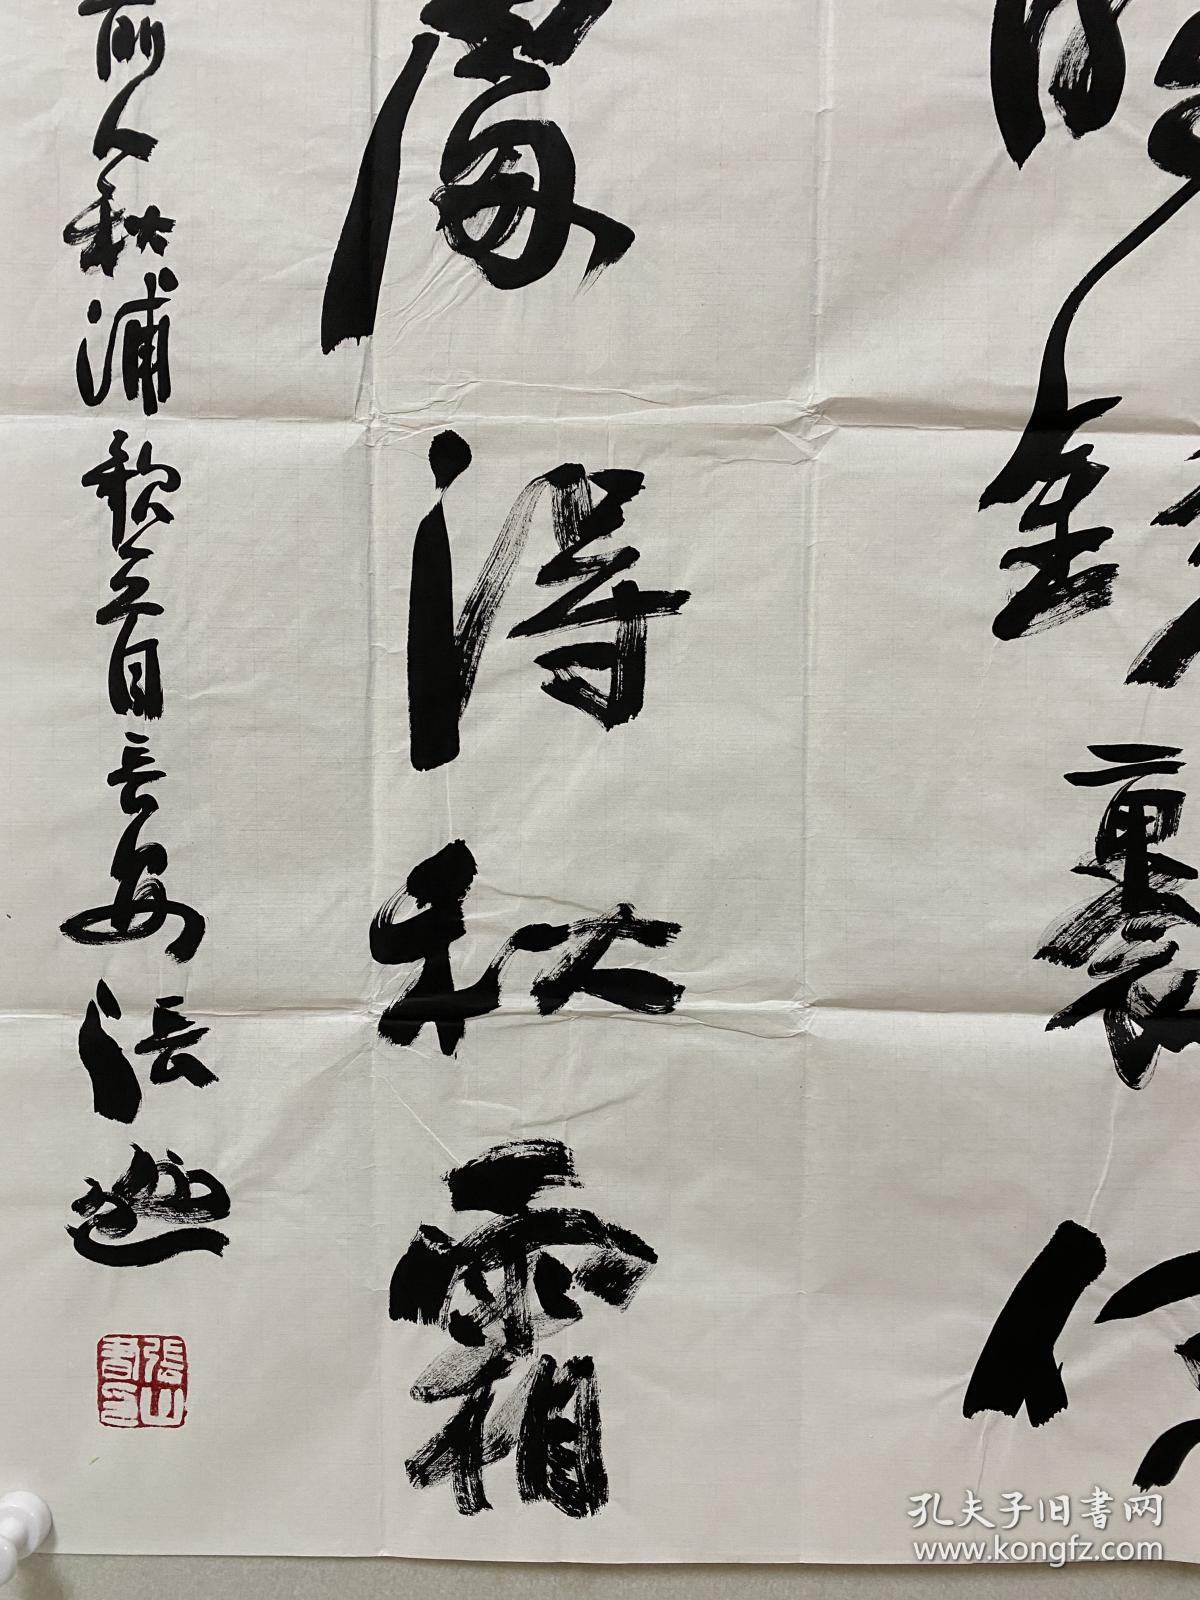 明鏡裏何
處得秋霜
前人秋浦歌一首長安張
張山書印
孔夫子旧书网
www.kongfz.com